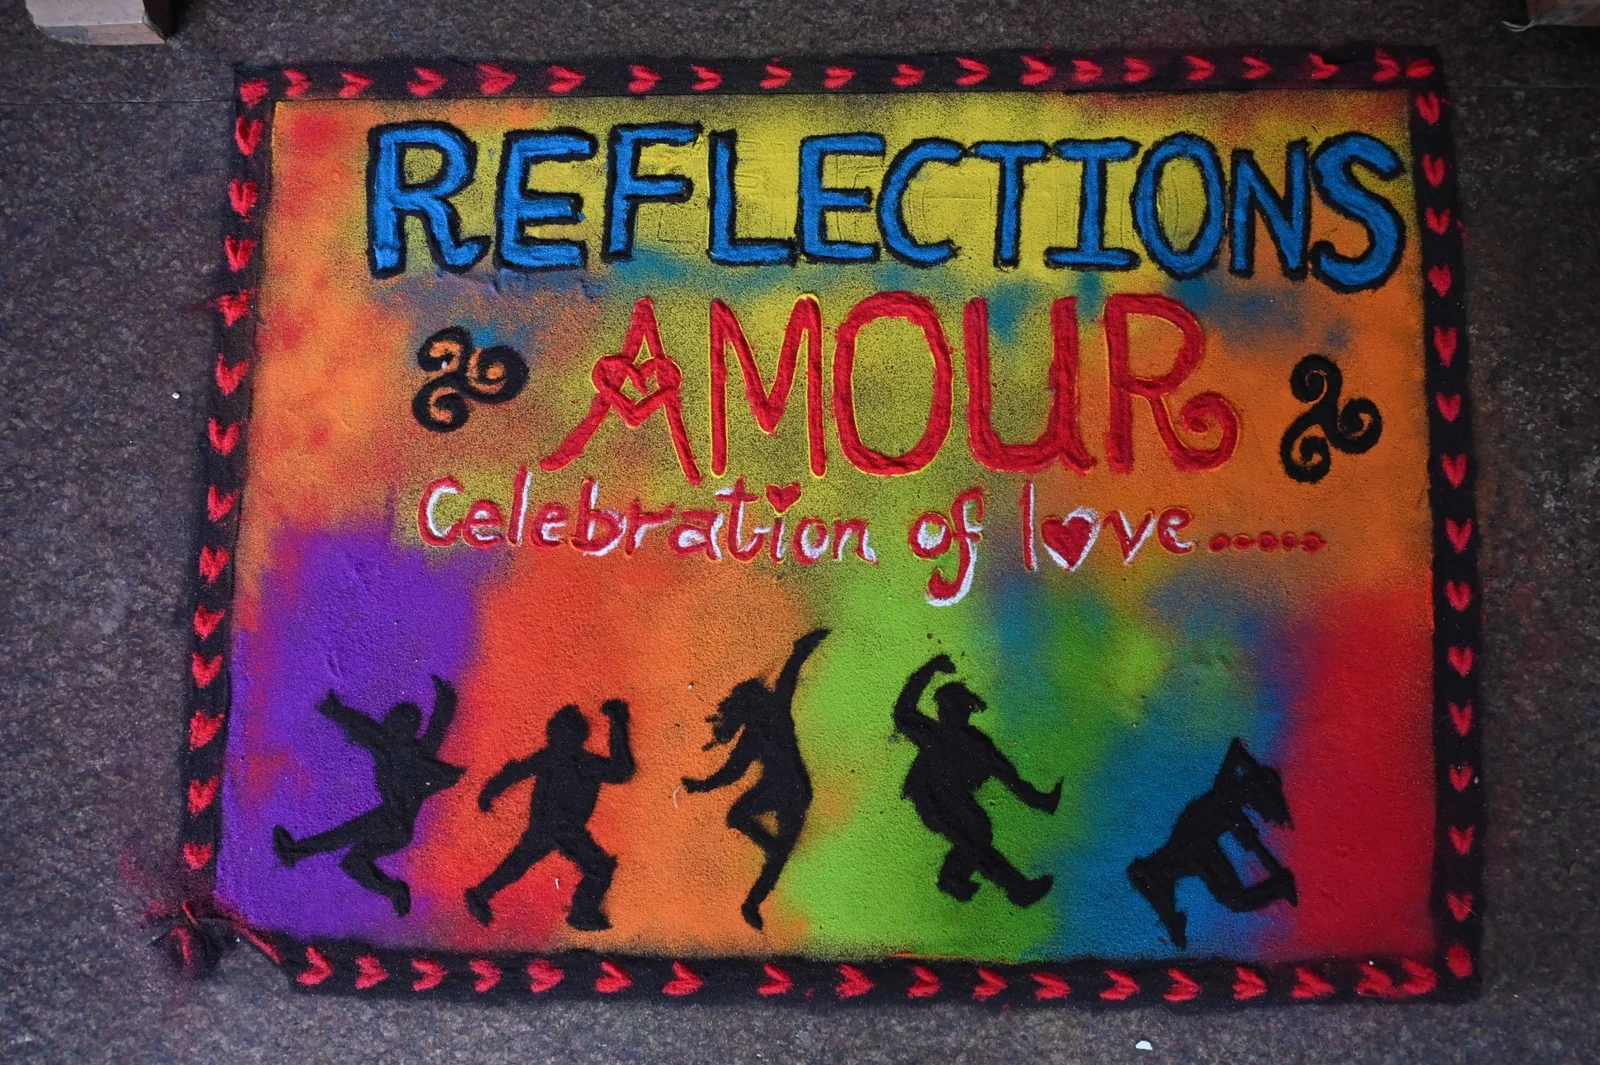 REFLECTIONS
AMOUR
Celebration of love......